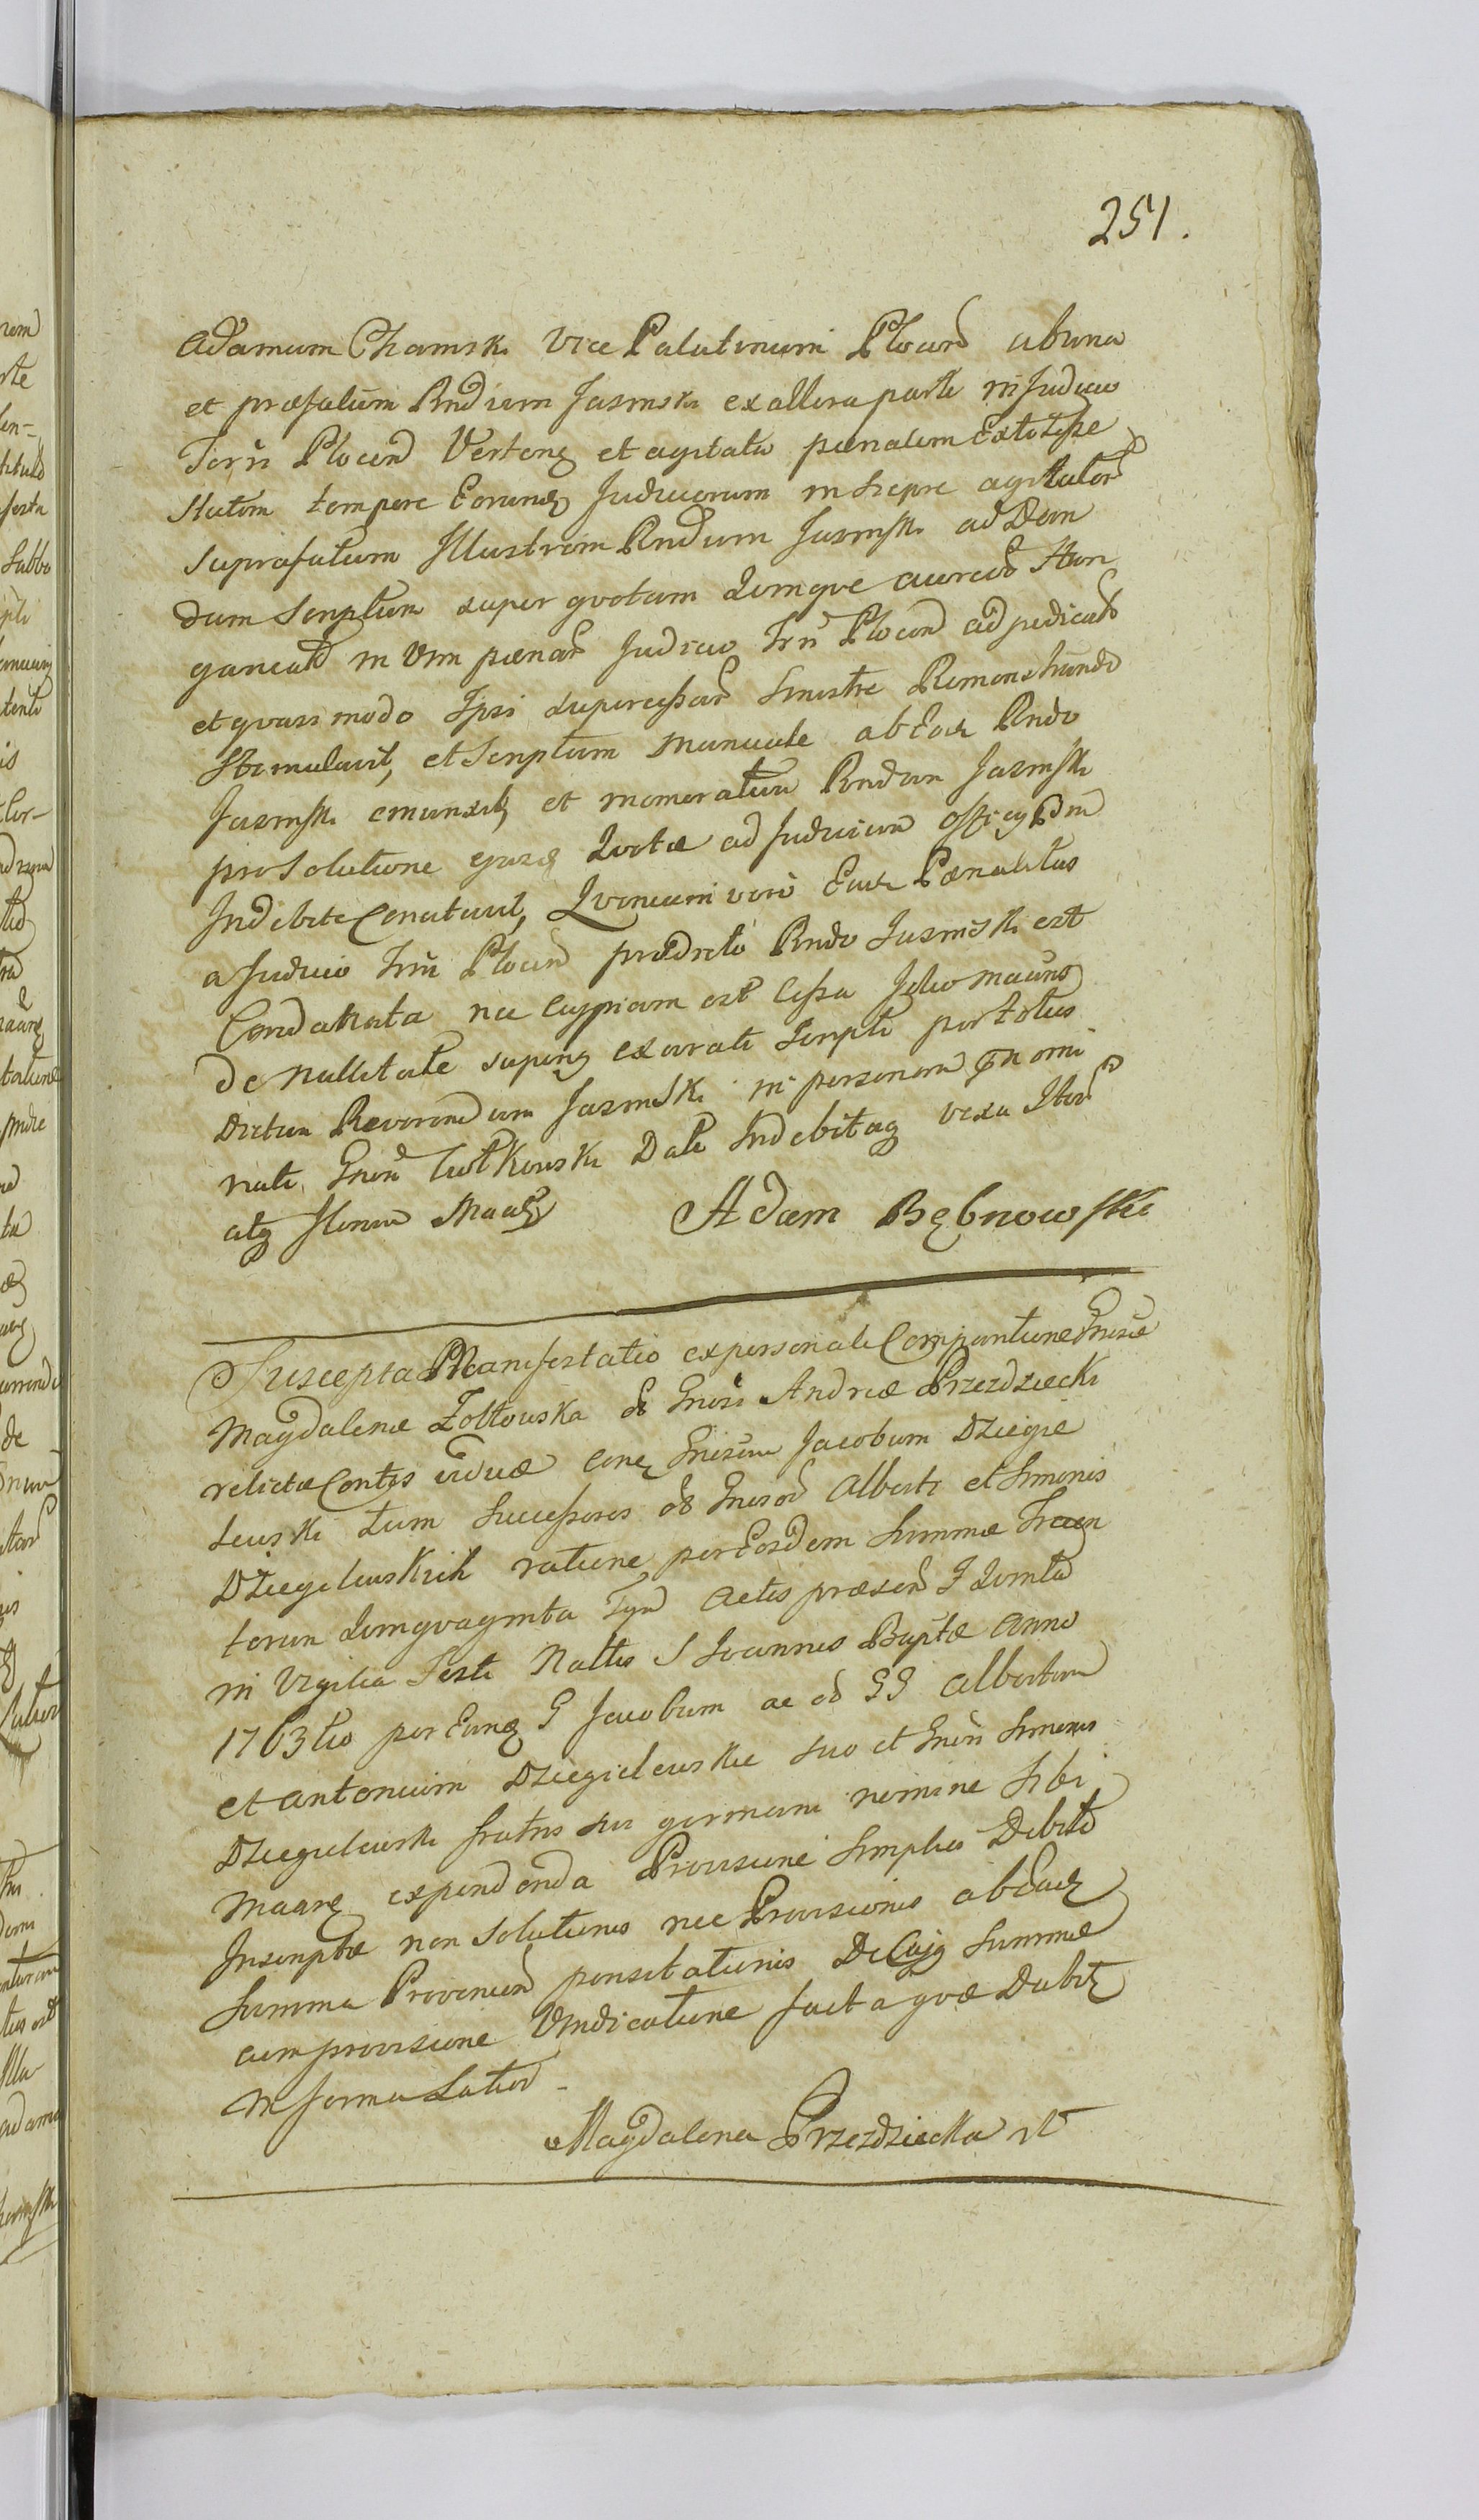 251.
Adamum Chamski Vice Palatinum Plocen ab una
et præfatum Rndum Jasinski ex altera parte in Judicio
Terri Plocen Verten et agitata pœnalem Extitisse
statim tempore Eorunq Judiciorum in Sieprc agitator
suprafatum Illustrem Rndum Jasinski ad Dan
dum Scriptum super quotam quinque aureor Hun
garical in Vim pœnar Judicio Trri Plocen adjudicat
et quasi modo Ipsi supercessar sinistre Remonstrando
Stimulavit, et Scriptum manuale ab Eod Rndo
Jasinski emunxit, et memoratum Rndum Jasinski
pro Solutione ejusq quotæ ad Judicium Officy
Indebite Conatavit, Quoniam vero Ead Pœnalitas
a Judicio Trri Plocen prædicto Rndo Jasinski est
Condonata nec cuipiam est Cessa Ideo
de nullitate superq exarati Scripti per totus
dictum Reverendum Jasinski in personam nomi
nati Gnosi Lutkowski Dati Indebitaq vexa
atq
Adam Bębnowski
Suscepta Manifestatio ex personali Comparitione Gnosæ
Magdalenæ Zołtowska ol Gnosi Andreæ Przezdziecki
relictæ Contis viduæ conq Gnosum Jacobum Dziegie
lewski tum Successores ol Gnosor Alberti et Simonis
Dziegielewskich ratione per Eosdem Summæ Tricen
torum quinquaginta Tyn Actis præsen
in Vigilia Festi Nattis S Joannis Baptæ Anno
1763tio per Eunq G Jacobum ac ol GG Albertum
et Antonium Dziegielewskie suo et Gnosi Simonis
Dziegielewski fratris sui germani nomine Sibi
Maanq expendenda Provisione Simplici Debito
Inscriptæ non Solutionis nec Provisionis ab Ead
Summa Provenien pensitationis De Cujq Summæ
cum provisione Vindicatione facta quæ Dabit
in forma Latior
Magdalena Przezdziecka